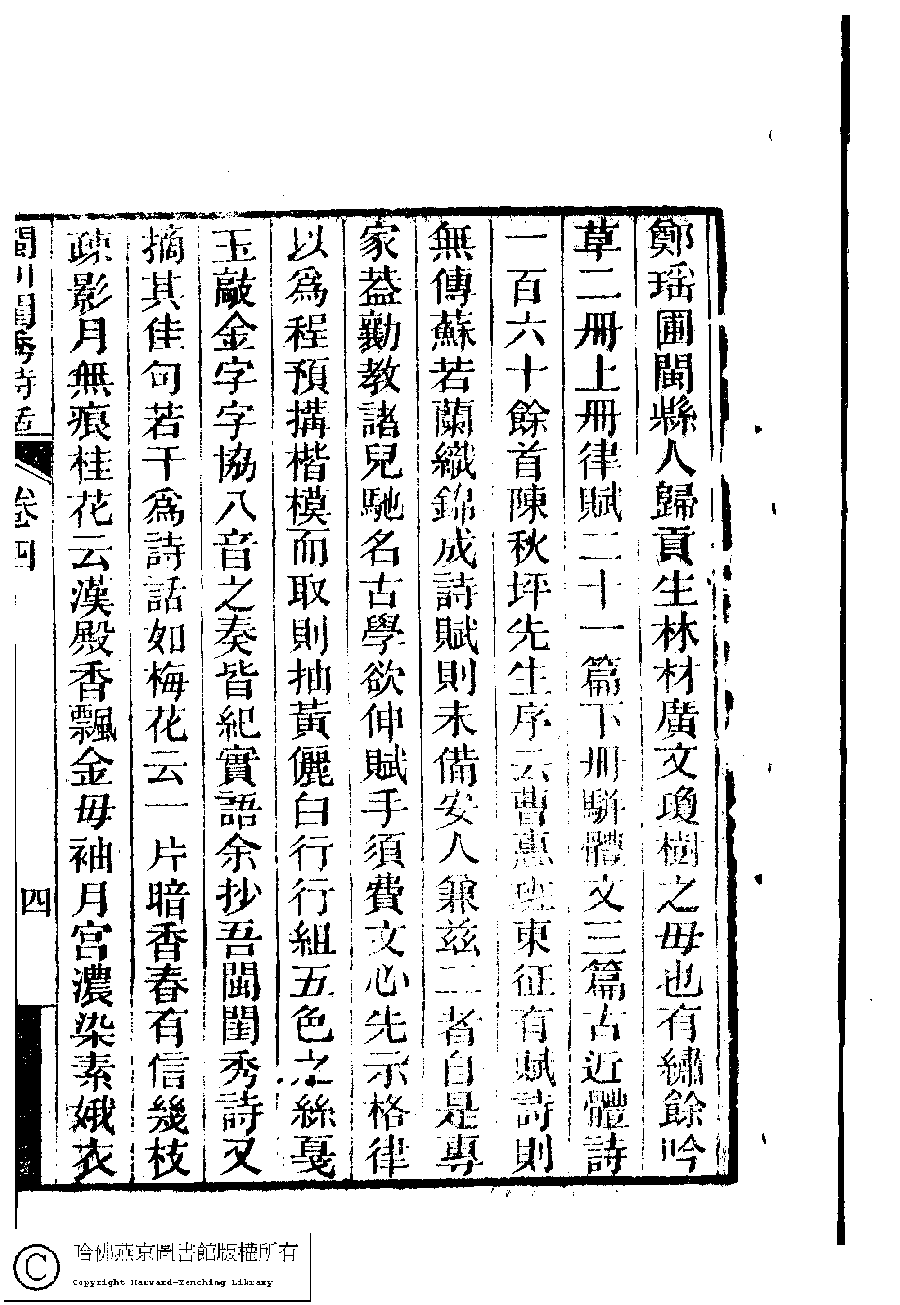 鄭瑶圃閩縣人歸貢生林材廣文瓊樹之毋也有繡餘吟
草二冊上冊律賦二十一篇下冊駢體文三篇古近體詩
一百六十餘首陳秋坪先生序云曹惠班東征有賦詩則
無傳蘇若蘭織錦成詩賦則未備安人兼兹二者自是專
家葢勤教諸兒馳名古學欲伸賦手須費文心先示格律
以爲程預搆楷模而取則抽黃儷白行行組五色之絲戞
玉敲金字字協八音之奏皆紀實語余抄吾閩閨秀詩又
摘其佳句若干爲詩話如梅花云一片暗香春有信幾枝
疎影月無痕桂花云漢殿香飄金毋袖月宮濃染素娥衣
閩川閨秀詩話 卷四 四
哈佛燕京圖書館版權所有
Copyright Harvard-Yenching Library